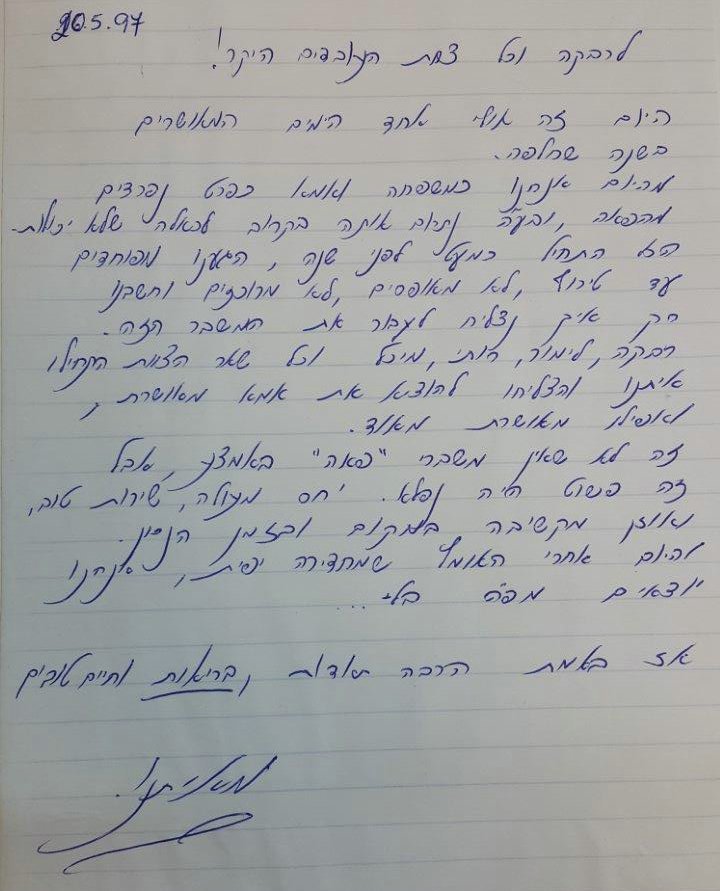 20.5.97
לרבקה וכל צוות הנוכפים היקר!
היום זה אולי אחד הימים המאושרים
בשנה שחלפה.
מהיום אנחנו כמשפחה ואמא כפרט נפרדים
מהפאה, ובע"ה נתרום אותה בקרוב לכאלה שלא יכולות.
הכל התחיל כמעט לפני שנה, הגענו מפוחדים
עד טירוף, לא מאופסים, לא מרוכזים וחשבנו
רק איך נצליח לעבור את המשבר הזה.
רבקה, לימור, רותי, מיכל וכל שאר הצוות התחילו
איתנו והצליחו להוציא את אמא מאושרת,
ואפילו מאושרת מאוד.
זה לא שאין משברי "פאה" באמצע, אבל
זה פשוט היה נפלא. יחס מעולה, שירות טוב,
ואוזן מקשיבה במקום ובזמן הנכון.
והיום אחרי האומץ שהחדירה יפית, אנחנו
יוצאים מפה בלי...
אז באמת הרבה תודות, בריאות וחיים טובים